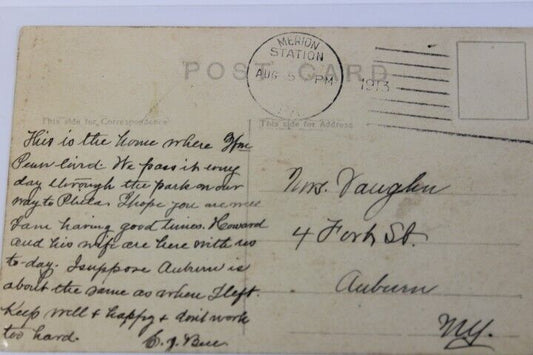 MERION
STATION
POST CARD
AUG 5 PM
1913
PA.
This side for Correspondence
This side for Address
This is the home where Wm
Penn lived. We pass it every
day through the park on our
way to Phila. I hope you are well
I am having good times. Howard
and his wife are here with us
to-day. I suppose Auburn is
about the same as when I left.
Keep well & happy & don't work
too hard.
Mrs. Vaughn
4 Fort St.
Auburn
N.Y.